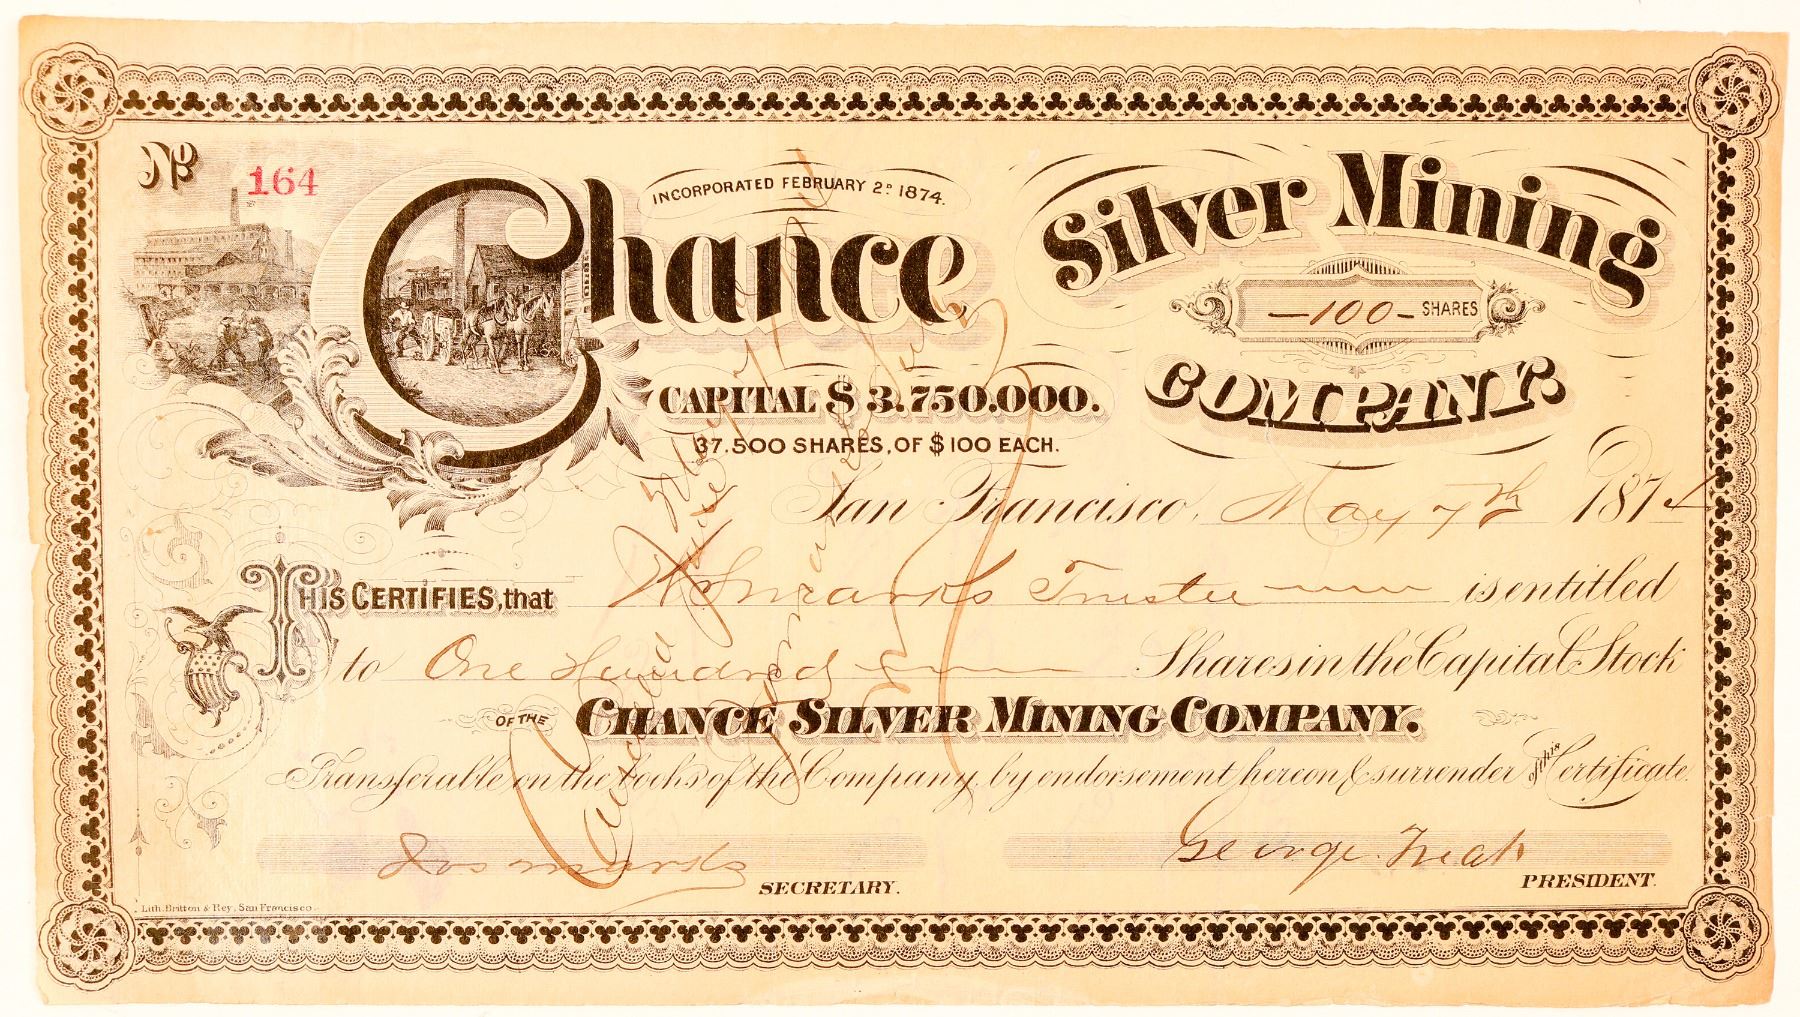 No 164
INCORPORATED FEBRUARY 2D 1874.
Chance
Silver Mining
-100- SHARES
COMPANY.
CAPITAL $3.750.000.
37.500 SHARES, OF $100 EACH.
San Francisco, May 7th 1874
THIS CERTIFIES, that Trustee is entitled
to One Hundred Shares in the Capital Stock
OF THE CHANCE SILVER MINING COMPANY.
Transferable on the books of the Company, by endorsement hereon, & surrender of this Certificate.
Jos Marks SECRETARY.
George PRESIDENT.
Lith. Britton & Rey, San Francisco.
Cancelled